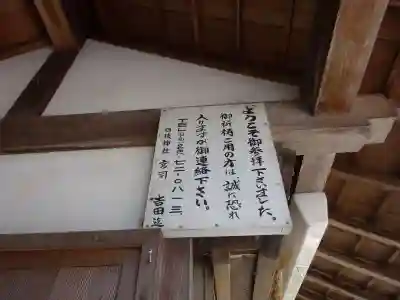 ようこそ御参拝下さいました。
御祈祷ご用の方は、誠に恐れ
入りますが御連絡下さい。
七二-〇八一三
宮司
吉田